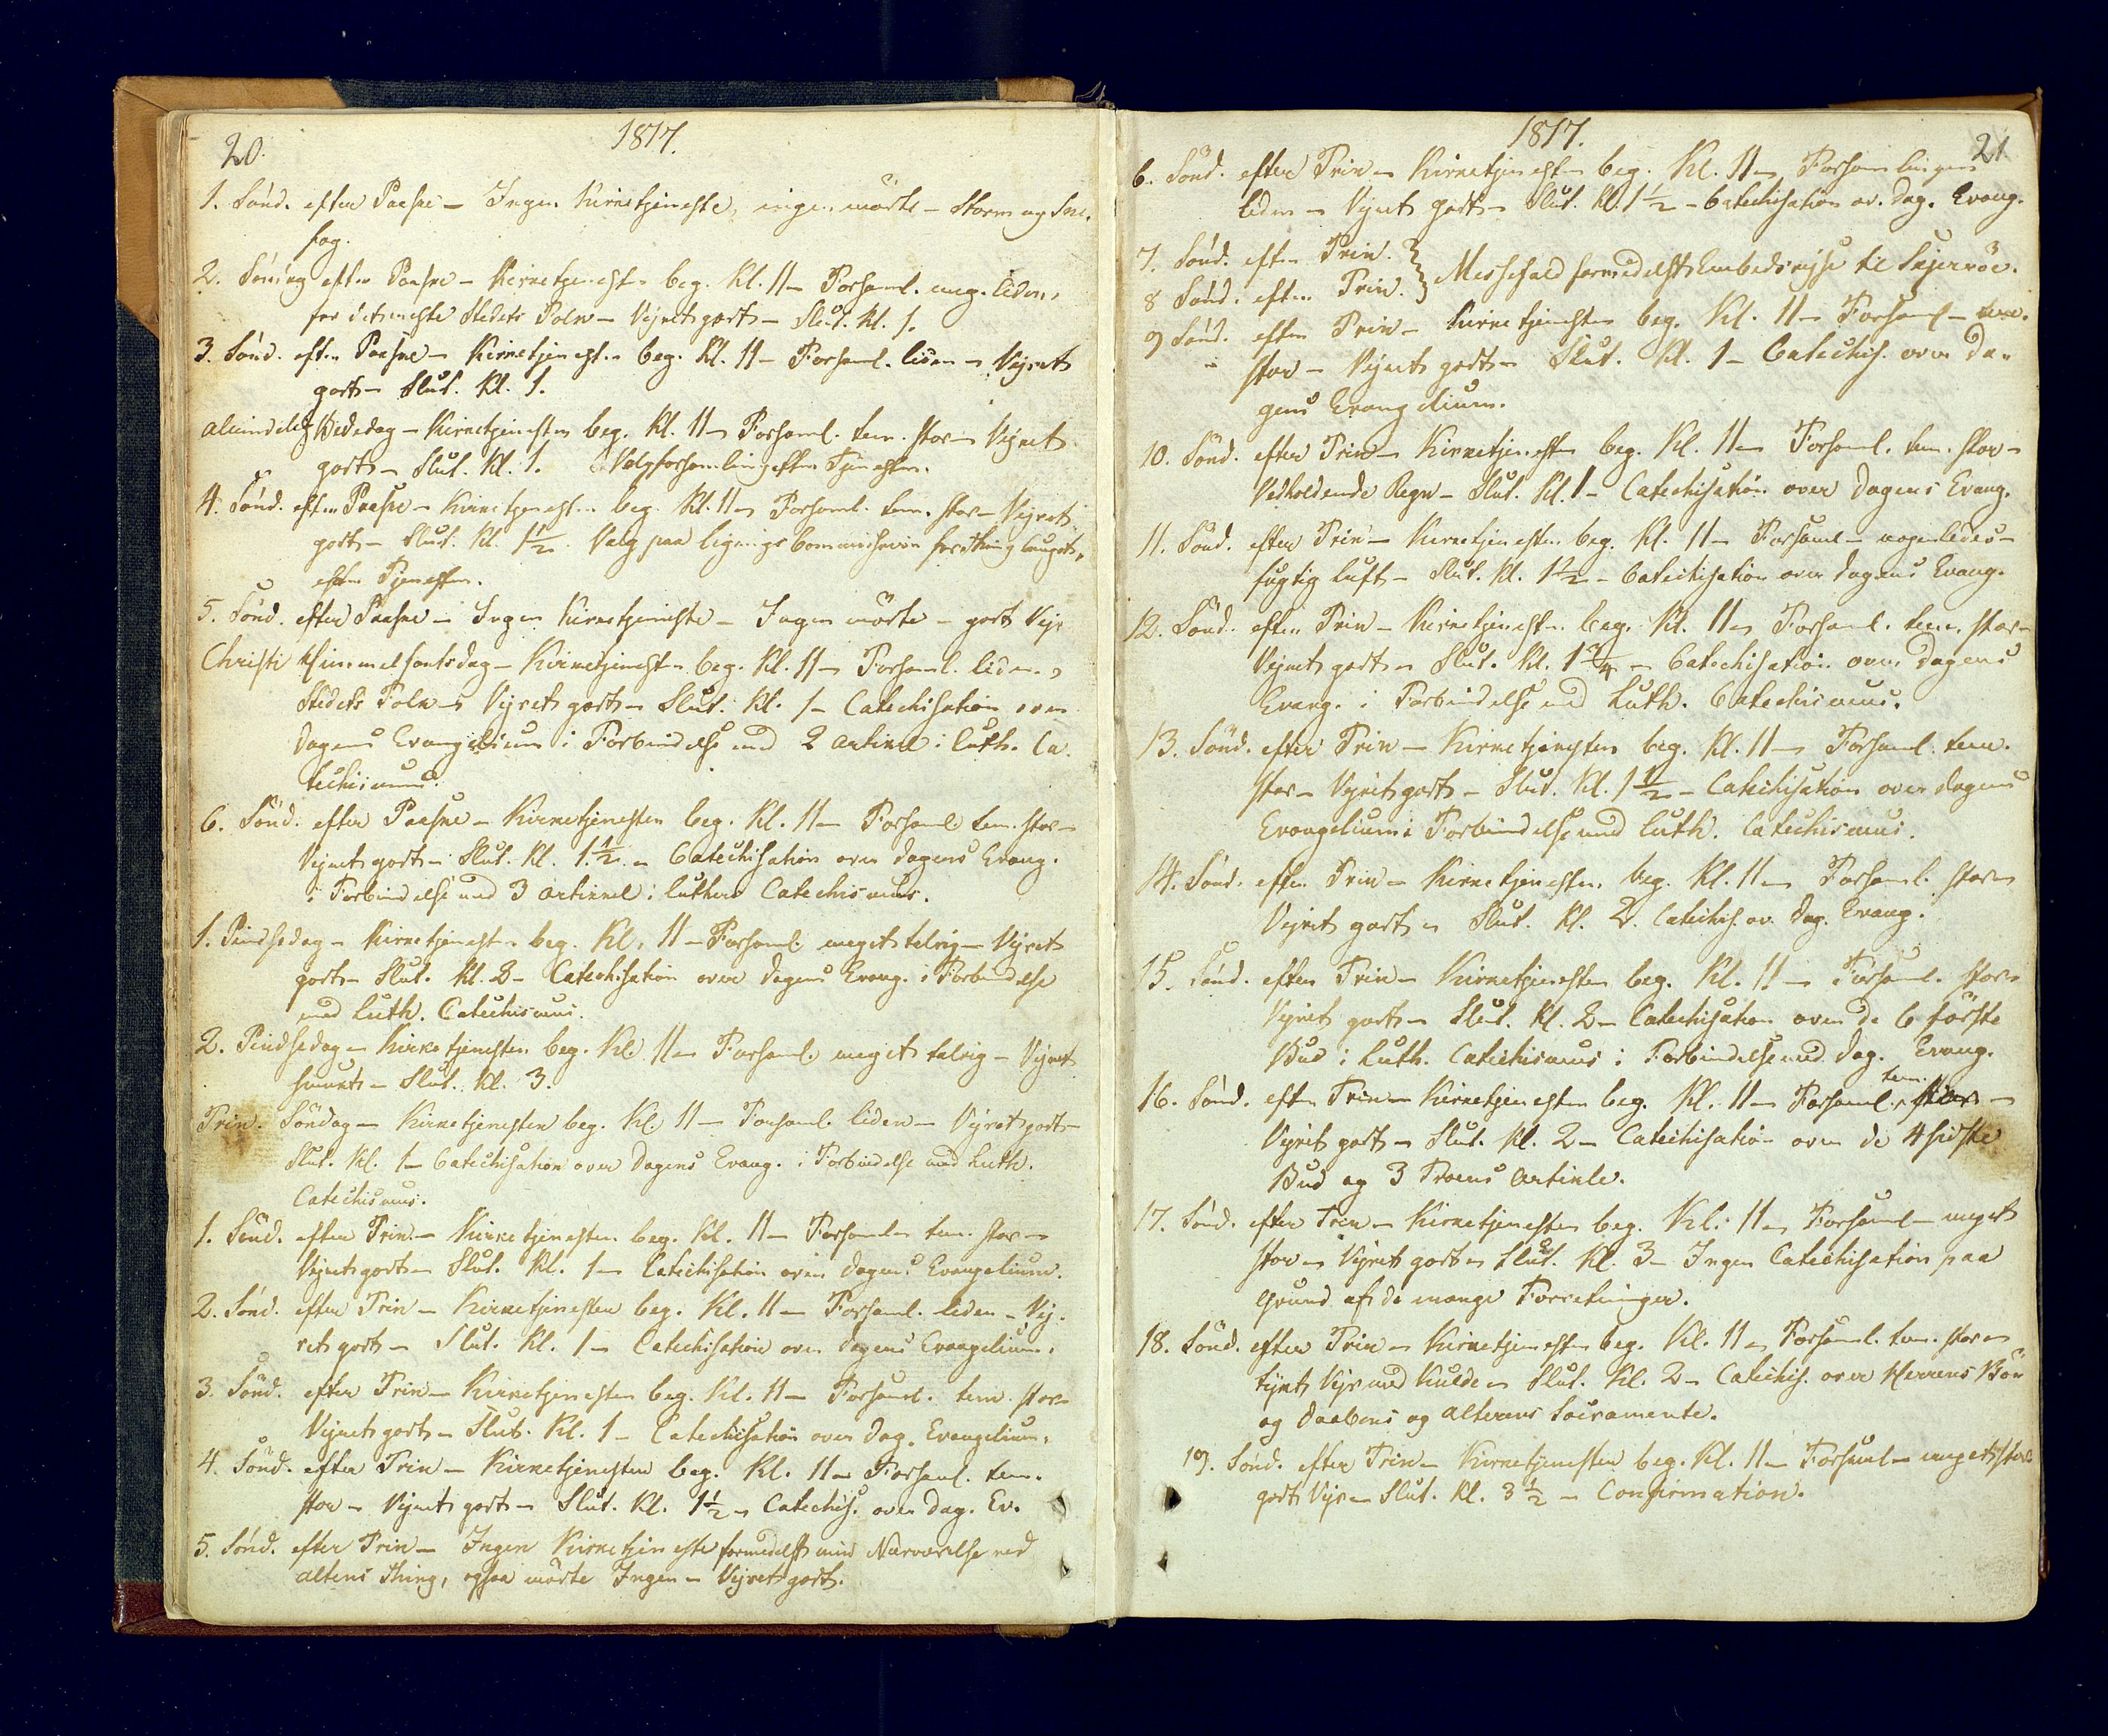 20.
1817.
1. Sönd. efter Paaske – Ingen Kirketjeneste, ingen mödte – Storm og Sne.
fog.
2. Söndag efter Paaske – Kirketjenesten beg. Kl. 11 – Forsaml. meg. liden,
for det meste Stedets Folk – Vejret godt – Slut. Kl. 1.
3. Sönd. efter Paaske – Kirketjenesten beg. Kl. 11 – Forsaml. liden – Vejret
godt – Slut. Kl. 1.
Almindelig Bededag – Kirketjenesten beg. Kl. 11 – Forsaml. tem. stor – Vejret
godt – Slut. Kl. 1. Valgforsamling efter Tjenesten.
4. Sönd. efter Paaske – Kirketjenesten beg. Kl. 11 – Forsaml. tem. stor – Vejret
godt – Slut. Kl. 1½. Valg paa Ligningscommission for Thinglauget,
efter Tjenesten.
5. Sönd. efter Paaske – Ingen Kirketjeneste – Ingen mödte – godt Vejr
Christi Himmelfartsdag – Kirketjenesten beg. Kl. 11 – Forsaml. liden,
Stedets Folk – Vejret godt – Slut. Kl. 1 – Catechisation over
Dagens Evangelium i Forbindelse med 2 Artikel i Luth. Ca-
techismus.
6. Sönd. efter Paaske – Kirketjenesten beg. Kl. 11 – Forsaml. tem. stor –
Vejret godt – Slut. Kl. 1½ – Catechisation over Dagens Evang.
i Forbindelse med 3 Artikkel i Luthers Catechismus.
1. Pindsedag – Kirketjenesten beg. Kl. 11 – Forsaml. meget talrig – Vejret
godt – Slut. Kl. 3 – Catechisation over Dagens Evang. i Forbindelse
med Luth. Catechismus.
2. Pindsedag – Kirketjenesten beg. Kl. 11 – Forsaml. meget talrig – Vejret
smukt – Slut. Kl. 3.
Trin. Söndag – Kirketjenesten beg. Kl. 11 – Forsaml. liden – Vejret godt –
Slut. Kl. 1 – Catechisation over Dagens Evang. i Forbindelse med Luth.
Catechismus.
1. Sönd. efter Trin. – Kirketjenesten beg. Kl. 11 – Forsaml. tem. stor –
Vejret godt – Slut. Kl. 1 – Catechisation over Dagens Evangelium.
2. Sönd. efter Trin – Kirketjenesten beg. Kl. 11 – Forsaml. liden – Vej-
ret godt – Slut. Kl. 1 – Catechisation over Dagens Evangelium.
3. Sönd. efter Trin – Kirketjenesten beg. Kl. 11 – Forsaml. tem. stor –
Vejret godt – Slut. Kl. 1 – Catechisation over Dag. Evangelium.
4. Sönd. efter Trin – Kirketjenesten beg. Kl. 11 – Forsaml. tem.
stor – Vejret godt – Slut. Kl. 1½ – Catechis. over Dag. Ev.
5. Sönd. efter Trin – Ingen Kirketjeneste formedelst min Nærværelse ved
Altens Thing, ogsaa mödte Ingen – Vejret godt.
1817.
21
6. Sönd. efter Trin – Kirketjenesten beg. Kl. 11 – Forsamlingen
liden – Vejret godt – Slut. Kl. 1½ – Catechisation ov. Dag. Evang.
7. Sönd. efter Trin.
8 Sönd. efter Trin. } Messefald formedelst Embedsrejse til
9 Sönd. efter Trin – Kirketjenesten beg. Kl. 11 – Forsaml – tem.
stor – Vejret godt – Slut. Kl. 1 – Catechis. over Da-
gens Evangelium.
10. Sönd. efter Trin – Kirketjenesten beg. Kl. 11 – Forsaml. tem. stor –
Vedholdende Regn – Slut. Kl. 1 – Catechisation over Dagens Evang.
11. Sönd. efter Trin – Kirketjenesten beg. Kl. 11 – Forsaml – nogenledes –
fugtig Luft – Slut. Kl. 1½ – Catechisation over Dagens Evang.
12. Sönd. efter Trin – Kirketjenesten beg. Kl. 11 – Forsaml. tem. stor –
Vejret godt – Slut. Kl. 1¾ – Catechisation over Dagens
Evang. i Forbindelse med Luth. Catechismus.
13. Sönd. efter Trin – Kirketjenesten beg. Kl. 11 – Forsaml. tem.
stor – Vejret godt – Slut. Kl. 1½ – Catechisation over Dagens
Evangelium i Forbindelse med Luth. Catechismus.
14. Sönd. efter Trin – Kirketjenesten beg. Kl. 11 – Forsaml. stor –
Vejret godt – Slut. Kl. 2. Catechis. ov. Dag. Evang.
15. Sönd. efter Trin – Kirketjenesten beg. Kl. 11 – Forsaml. stor –
Vejret godt – Slut. Kl. 2 – Catechisation over de 6 förste
Bud i Luth. Catechismus i Forbindelse med Dag. Evang.
16. Sönd. efter Trin – Kirketjenesten beg. Kl. 11 – Forsaml. tem. stor –
Vejret godt – Slut. Kl. 2 – Catechisation over de 4 sidste
Bud og 3 Troens Artikle.
17. Sönd. efter Trin – Kirketjenesten beg. Kl. 11 – Forsaml – meget
stor – Vejret godt – Slut. Kl. 3 – Ingen Catechisation paa
Grund af de mange Forretninger.
18. Sönd. efter Trin – Kirketjenesten beg. Kl. 11 – Forsaml. tem. stor –
tykt Vejr med Kulde – Slut. Kl. 2 – Catechis. over Herrens Bön
og Daabens og Alterens Sacramente.
19. Sönd. efter Trin – Kirketjenesten beg. Kl. 11 – Forsaml – meget stor
godt Vejr – Slut. Kl. 3½ – Confirmation.